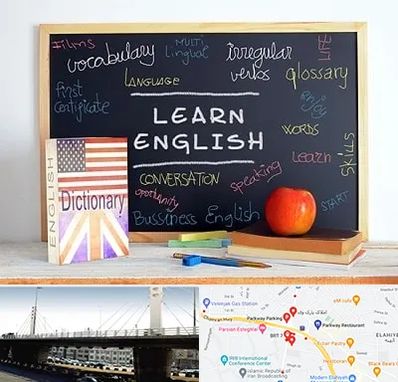 Films
vocabulary
MULTI
Lingual
irregular
verbs
LIFE
glossary
LANGUAGE
First
Certificate
Enjoy
LEARN
ENGLISH
WORDS
Learn
SKILLS
CONVERSATION
speaking
oportunity
Bussiness English
START
ENGLISH
Dictionary
Velenjak Gas Station
Parkway Parking
Parsian Esteghlal
Parkway Restaurant
BRT
ELAHIYEH
IRIB International
Conference Center
Islamic Republic of
Iran Broadcasting
Modern Elahiyeh